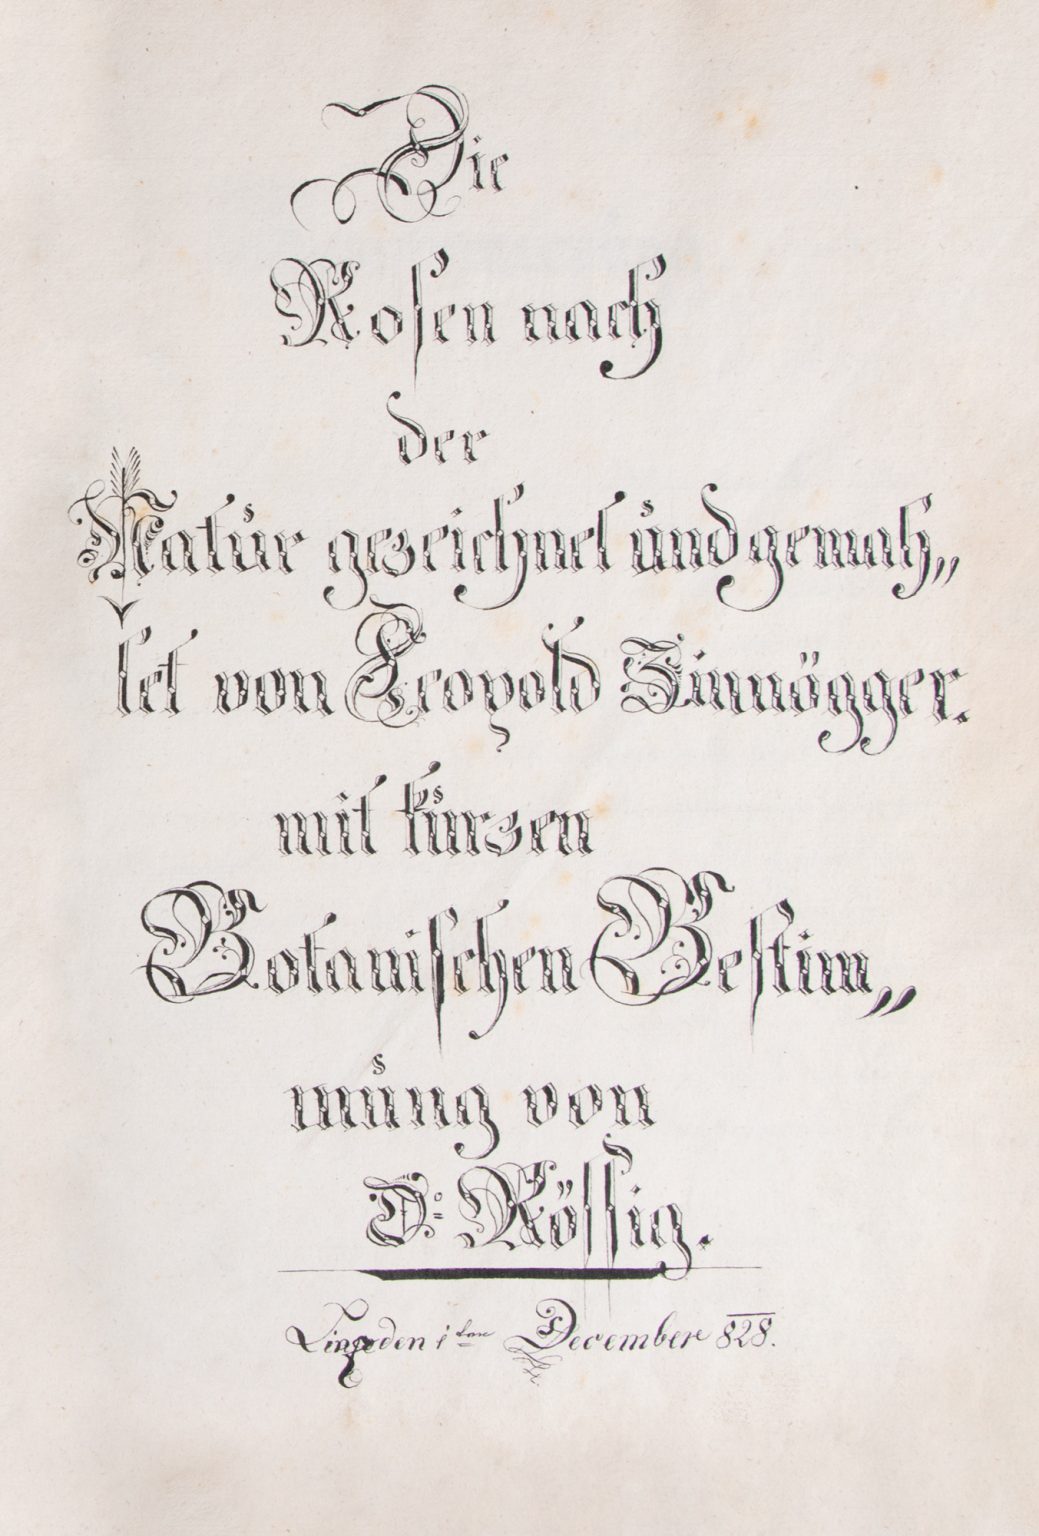 Die
Rosen nach
der
Natur gezeichnet und gemah„
let von Leopold Zinnögger.
mit kurzen
Botanischen Bestim„
mung von
D: Rössig.
Linz den 1ten December 828.